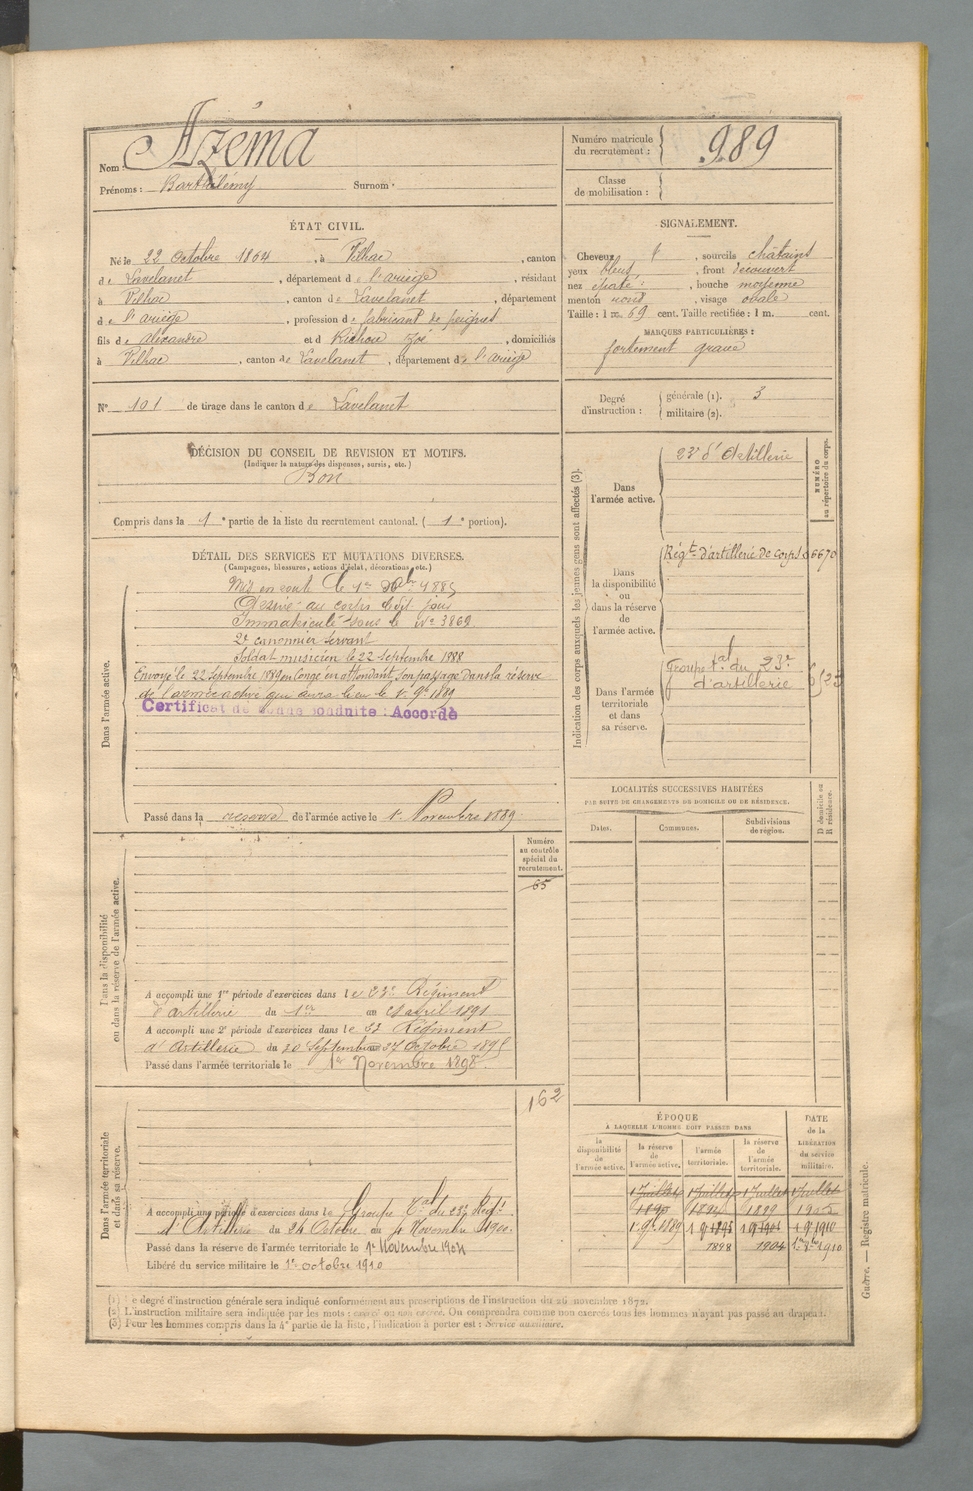 Nom : Azéma
Prénoms : Barthélémy Surnom :
Numéro matricule du recrutement : 989
Classe de mobilisation :
ÉTAT CIVIL.
Né le 22 Octobre 1864, à Vilhac, canton
de Lavelanet, département de l'ariège, résidant
à Vilhac, canton de Lavelanet, département
de l'ariège, profession de fabricant de peignes
fils de Alexandre et de Zoé, domiciliés
à Vilhac, canton de Lavelanet, département de l'ariège
SIGNALEMENT.
Cheveux, sourcils châtains
yeux bleus, front découvert
nez, bouche moyenne
menton rond, visage ovale
Taille : 1 m. 69 cent. Taille rectifiée : 1 m. cent.
MARQUES PARTICULIÈRES :
fortement gravé
N° 101 de tirage dans le canton de Lavelanet
Degré d'instruction : générale (1). 3
militaire (2).
DÉCISION DU CONSEIL DE REVISION ET MOTIFS.
(Indiquer la nature des dispenses, sursis, etc.)
Bon
Compris dans la 1e partie de la liste du recrutement cantonal. (1e portion).
DÉTAIL DES SERVICES ET MUTATIONS DIVERSES.
(Campagnes, blessures, actions d'éclat, décorations, etc.)
Dans l'armée active.
Mis en route le 1er 1885
Arrivé au corps le dit jour
Immatriculé sous le N° 3869
2e canonnier servant
Soldat musicien le 22 Septembre 1888
Envoyé le 22 Septembre 1889 en Congé en attendant son passage dans la réserve
de l'armée active qui aura lieu le 1er 9bre 1889
Certificat de bonne conduite : Accordé
Passé dans la réserve de l'armée active le 1er Novembre 1889
Indication des corps auxquels les jeunes gens sont affectés (3).
NUMÉRO au répertoire du corps.
Dans l'armée active.
23e d'Artillerie
Dans la disponibilité ou dans la réserve de l'armée active.
Régt d'artillerie de corps 6670
Dans l'armée territoriale et dans sa réserve.
Groupe tal du 23e
d'artillerie
LOCALITÉS SUCCESSIVES HABITÉES
PAR SUITE DE CHANGEMENTS DE DOMICILE OU DE RÉSIDENCE.
Dates. Communes. Subdivisions de région. D domicile ou R résidence.
Dans la disponibilité ou dans la réserve de l'armée active.
Numéro au contrôle spécial du recrutement.
65
A accompli une 1re période d'exercices dans le 23e Régiment
d'artillerie du 1er au avril 1891
A accompli une 2e période d'exercices dans le Régiment
d'Artillerie du 30 Septembre 27 Octobre 1895
Passé dans l'armée territoriale le 1er Novembre 1898.
Dans l'armée territoriale et dans sa réserve.
162
A accompli une période d'exercices dans le Groupe Tal du 23e Régt
d'Artillerie du 24 Octobre au Novembre 1900.
Passé dans la réserve de l'armée territoriale le 1er Novembre 1904
Libéré du service militaire le 1er octobre 1910
ÉPOQUE
À LAQUELLE L'HOMME DOIT PASSER DANS
la disponibilité de l'armée active. la réserve de l'armée active. l'armée territoriale. la réserve de l'armée territoriale.
DATE de la LIBÉRATION du service militaire.
1 Juillet 1 Juillet 1 Juillet 1 Juillet
1890 1894 1899 1905
1er 9bre 1889 1 9 1895 1 9 1901 1 9 1910
1898 1904
(1) Le degré d'instruction générale sera indiqué conformément aux prescriptions de l'instruction du 26 novembre 1872.
(2) L'instruction militaire sera indiquée par les mots : exercé ou non exercé. On comprendra comme non exercés tous les hommes n'ayant pas passé au drapeau.
(3) Pour les hommes compris dans la 4e partie de la liste, l'indication à porter est : Service auxiliaire.
Guerre. — Registre matricule.